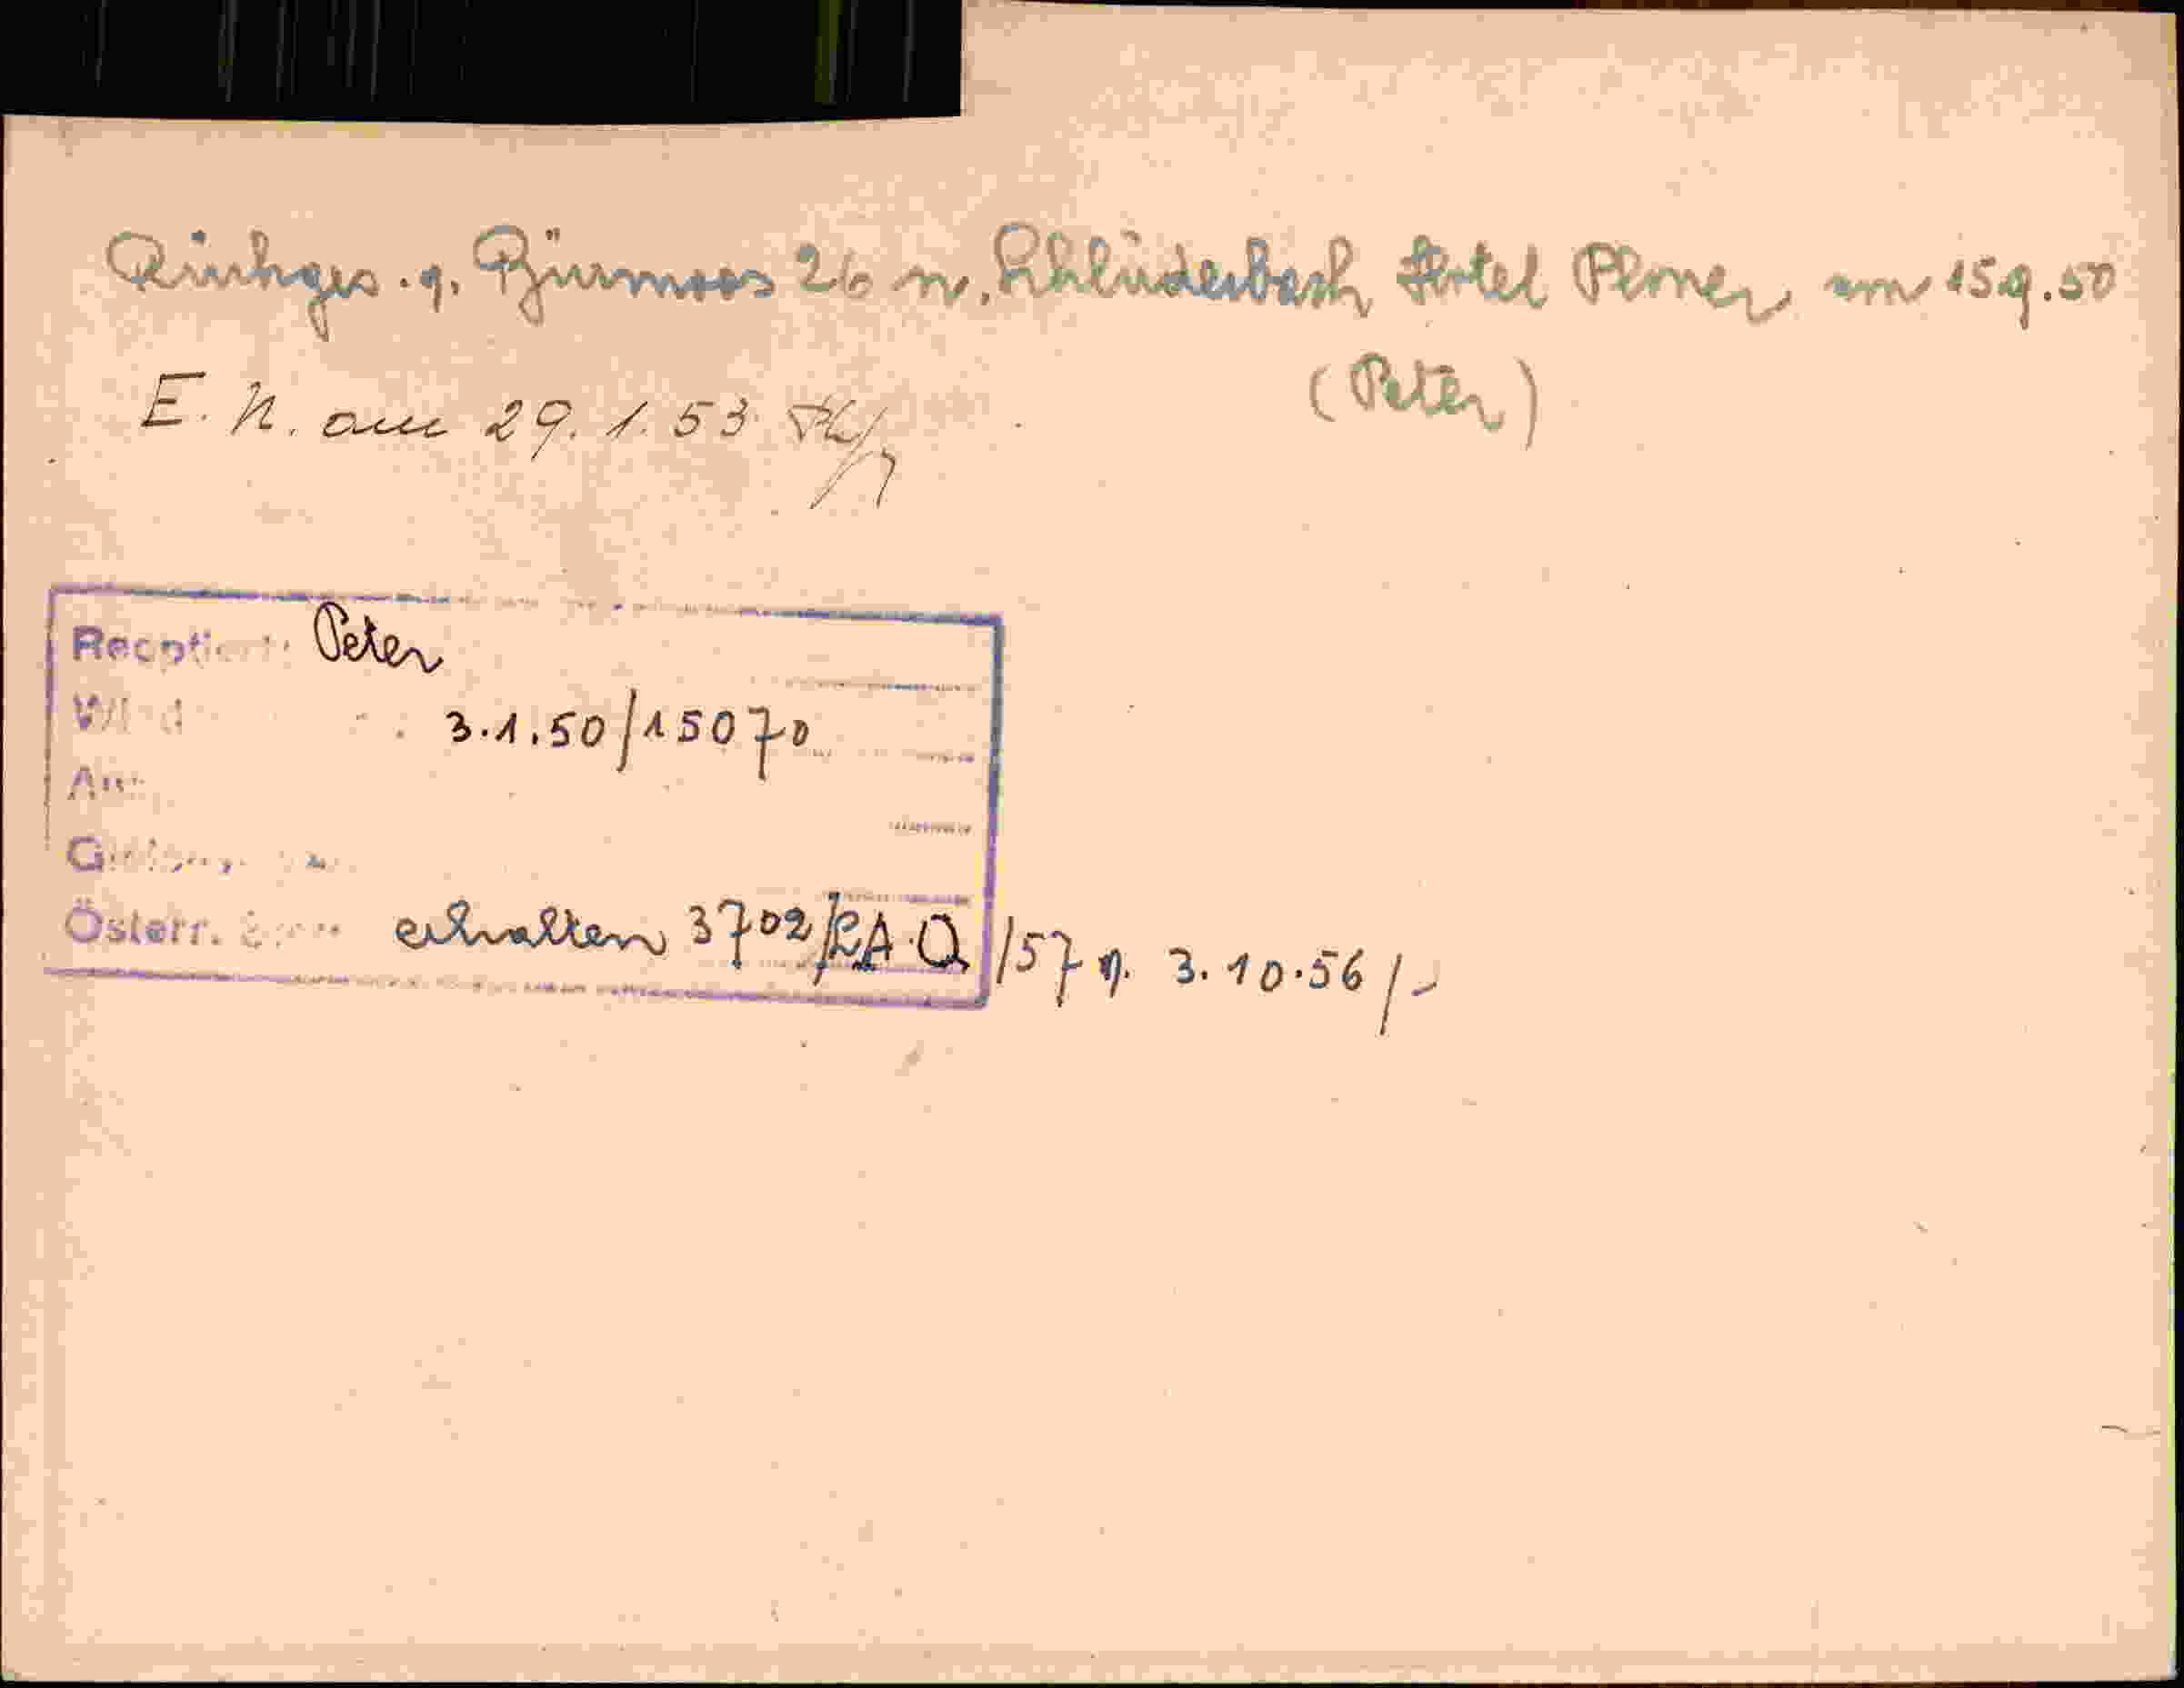 Rückges. g. Bürmoos 26 n. Schluderbach Hotel Ploner am 15.9.50
(Peter)
E. H. am 29. 1. 53
Peter
3.1.50/15070
An
Österr.
erhalten 3702/RA.Q/57 g. 3.10.56/-